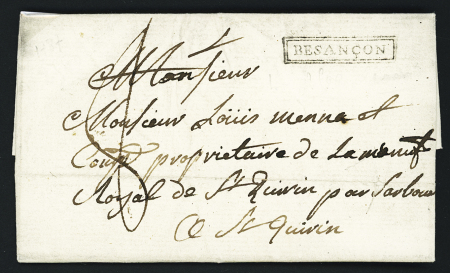 BESANÇON
Monsieur
Monsieur Louis menna et
Comp. propriétaire de La manuf
Royal de St Quirin par Sarbour
A St Quirin